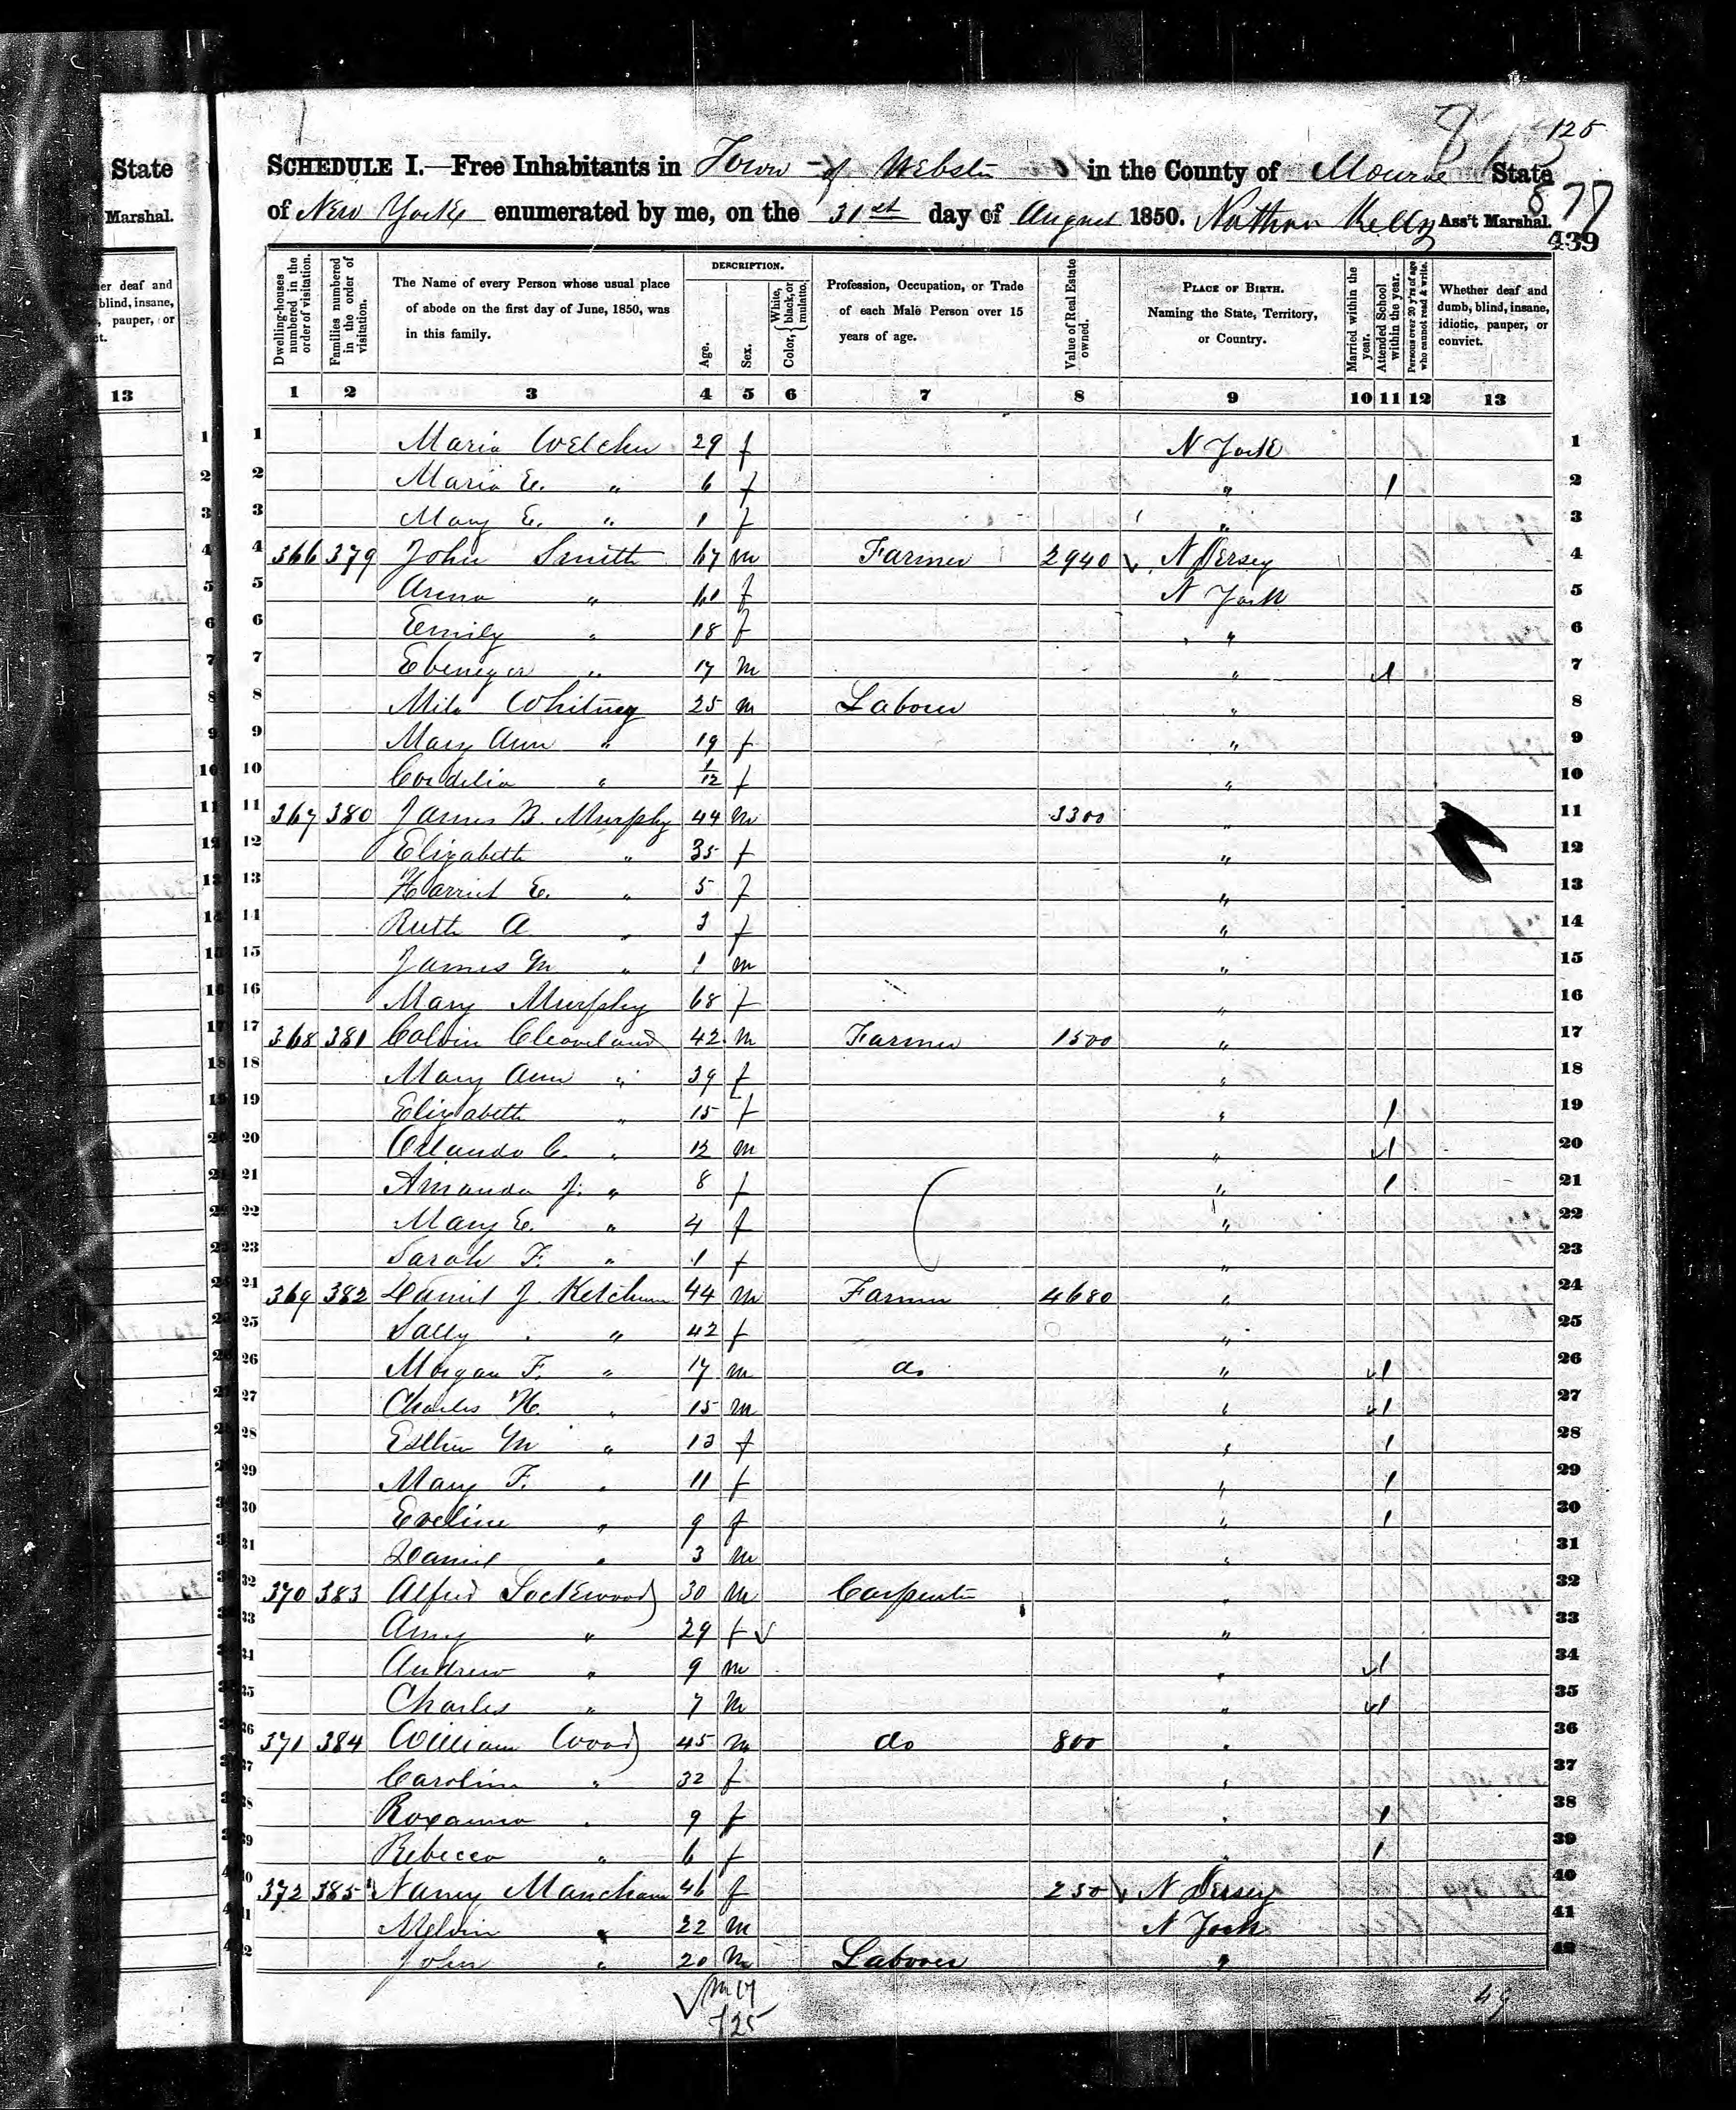 125
SCHEDULE I.—Free Inhabitants in Town of Webster in the County of Monroe State
of New York enumerated by me, on the 31st day of August 1850. Nathan Kelly Ass't Marshal.
877
439
State
Marshal.
13
Dwelling-houses numbered in the order of visitation.
Families numbered in the order of visitation.
The Name of every Person whose usual place of abode on the first day of June, 1850, was in this family.
DESCRIPTION.
Age.
Sex.
Color, White, black, or mulatto.
Profession, Occupation, or Trade of each Male Person over 15 years of age.
Value of Real Estate owned.
PLACE OF BIRTH. Naming the State, Territory, or Country.
Married within the year.
Attended School within the year.
Persons over 20 y'rs of age who cannot read & write.
Whether deaf and dumb, blind, insane, idiotic, pauper, or convict.
1 2 3 4 5 6 7 8 9 10 11 12 13
1 Maria Welcher 29 f N York 1
2 Maria E. " 6 f " 1 2
3 Mary E. " 1 f " 3
4 366 379 John Smith 67 m Farmer 2940 N Jersey 4
5 " 61 f N York 5
6 Emily " 18 f " 6
7 Ebenezer " 17 m " 1 7
8 Milo Whitney 25 m Laborer " 8
9 Mary Ann " 19 f " 9
10 Cordelia " 1/12 f " 10
11 367 380 James B. Murphy 44 m 3300 " 11
12 Elizabeth " 35 f " 12
13 Harriet E. " 5 f " 13
14 Ruth A " 3 f " 14
15 James M " 1 m " 15
16 Mary Murphy 68 f " 16
17 368 381 Calvin Cleaveland 42 m Farmer 1500 " 17
18 Mary Ann " 39 f " 18
19 Elizabeth " 15 f " 1 19
20 Orlando C. " 12 m " 1 20
21 Amanda J. " 8 f " 1 21
22 Mary E. " 4 f " 22
23 Sarah F. " 1 f " 23
24 369 382 Daniel J Ketchum 44 m Farmer 4680 " 24
25 Sally " 42 f " 25
26 Morgan F. " 17 m do " 1 26
27 Charles H. " 15 m " 1 27
28 Esther M " 13 f " 1 28
29 Mary F. " 11 f " 1 29
30 Eveline " 9 f " 1 30
31 Daniel " 3 m " 31
32 370 383 Alfred Lockwood 30 m Carpenter " 32
33 Amy " 29 f " 33
34 Andrew " 9 m " 1 34
35 Charles " 7 m " 1 35
36 371 384 William Wood 45 m do 800 " 36
37 Caroline " 32 f " 37
38 Roxanna " 9 f " 1 38
39 Rebecca " 6 f " 1 39
40 372 385 Nancy 46 f 250 N Jersey 40
41 Melvin " 22 m N York 41
42 John " 20 m Laborer " 42
m 17
f 25